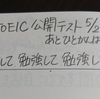 TOEIC 公開テスト 5/2
あとひとかんば
して 勉強して 勉強し